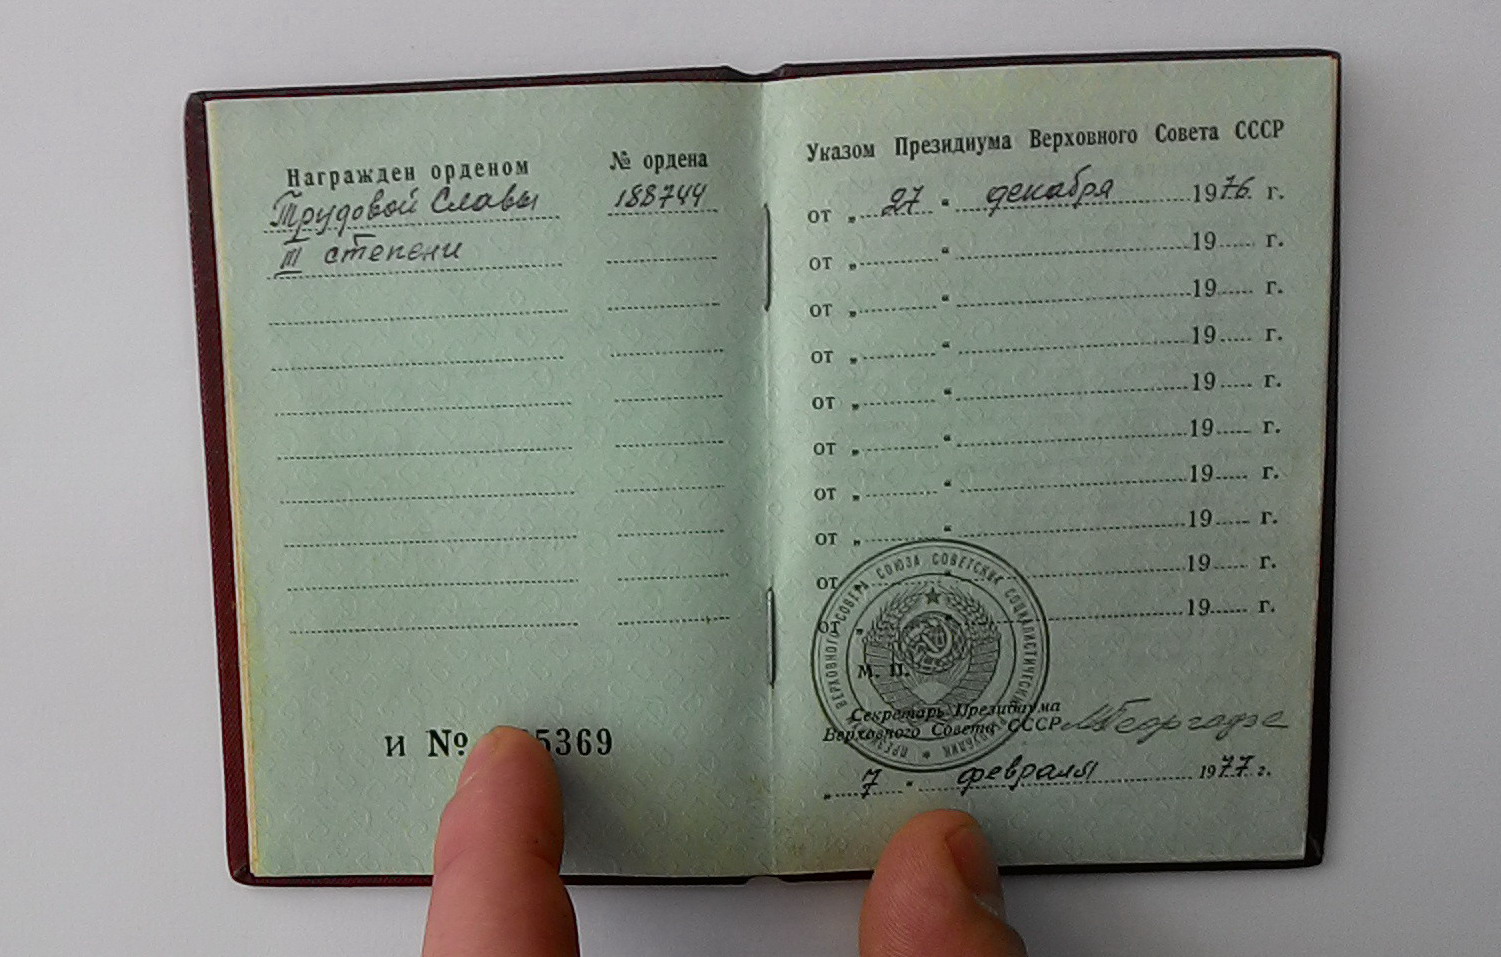 Награжден орденом
№ ордена
Трудовой Славы
188744
III степени
И № 5369
Указом Президиума Верховного Совета СССР
от „ 27 “ декабря 1976 г.
от „ “ 19 г.
от „ “ 19 г.
от „ “ 19 г.
от „ “ 19 г.
от „ “ 19 г.
от „ “ 19 г.
от „ “ 19 г.
от „ “ 19 г.
от „ “ 19 г.
М. П.
ПРЕЗИДИУМ ВЕРХОВНОГО СОВЕТА СОЮЗА СОВЕТСКИХ СОЦИАЛИСТИЧЕСКИХ РЕСПУБЛИК
Секретарь Президиума
Верховного Совета СССР МГеоргадзе
„ 7 “ февраля 1977 г.